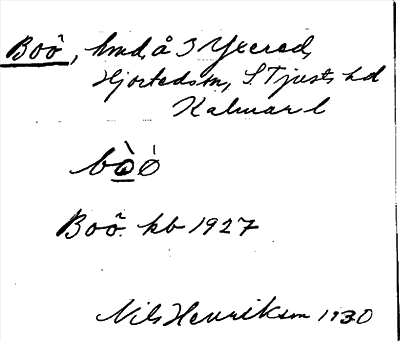 Boö, hmd, å S Yxered,
Hjorteds sn, S Tjusts hd
Kalmar l
bò̲ó
Boö kb 1927
Nils Henriksson 1930